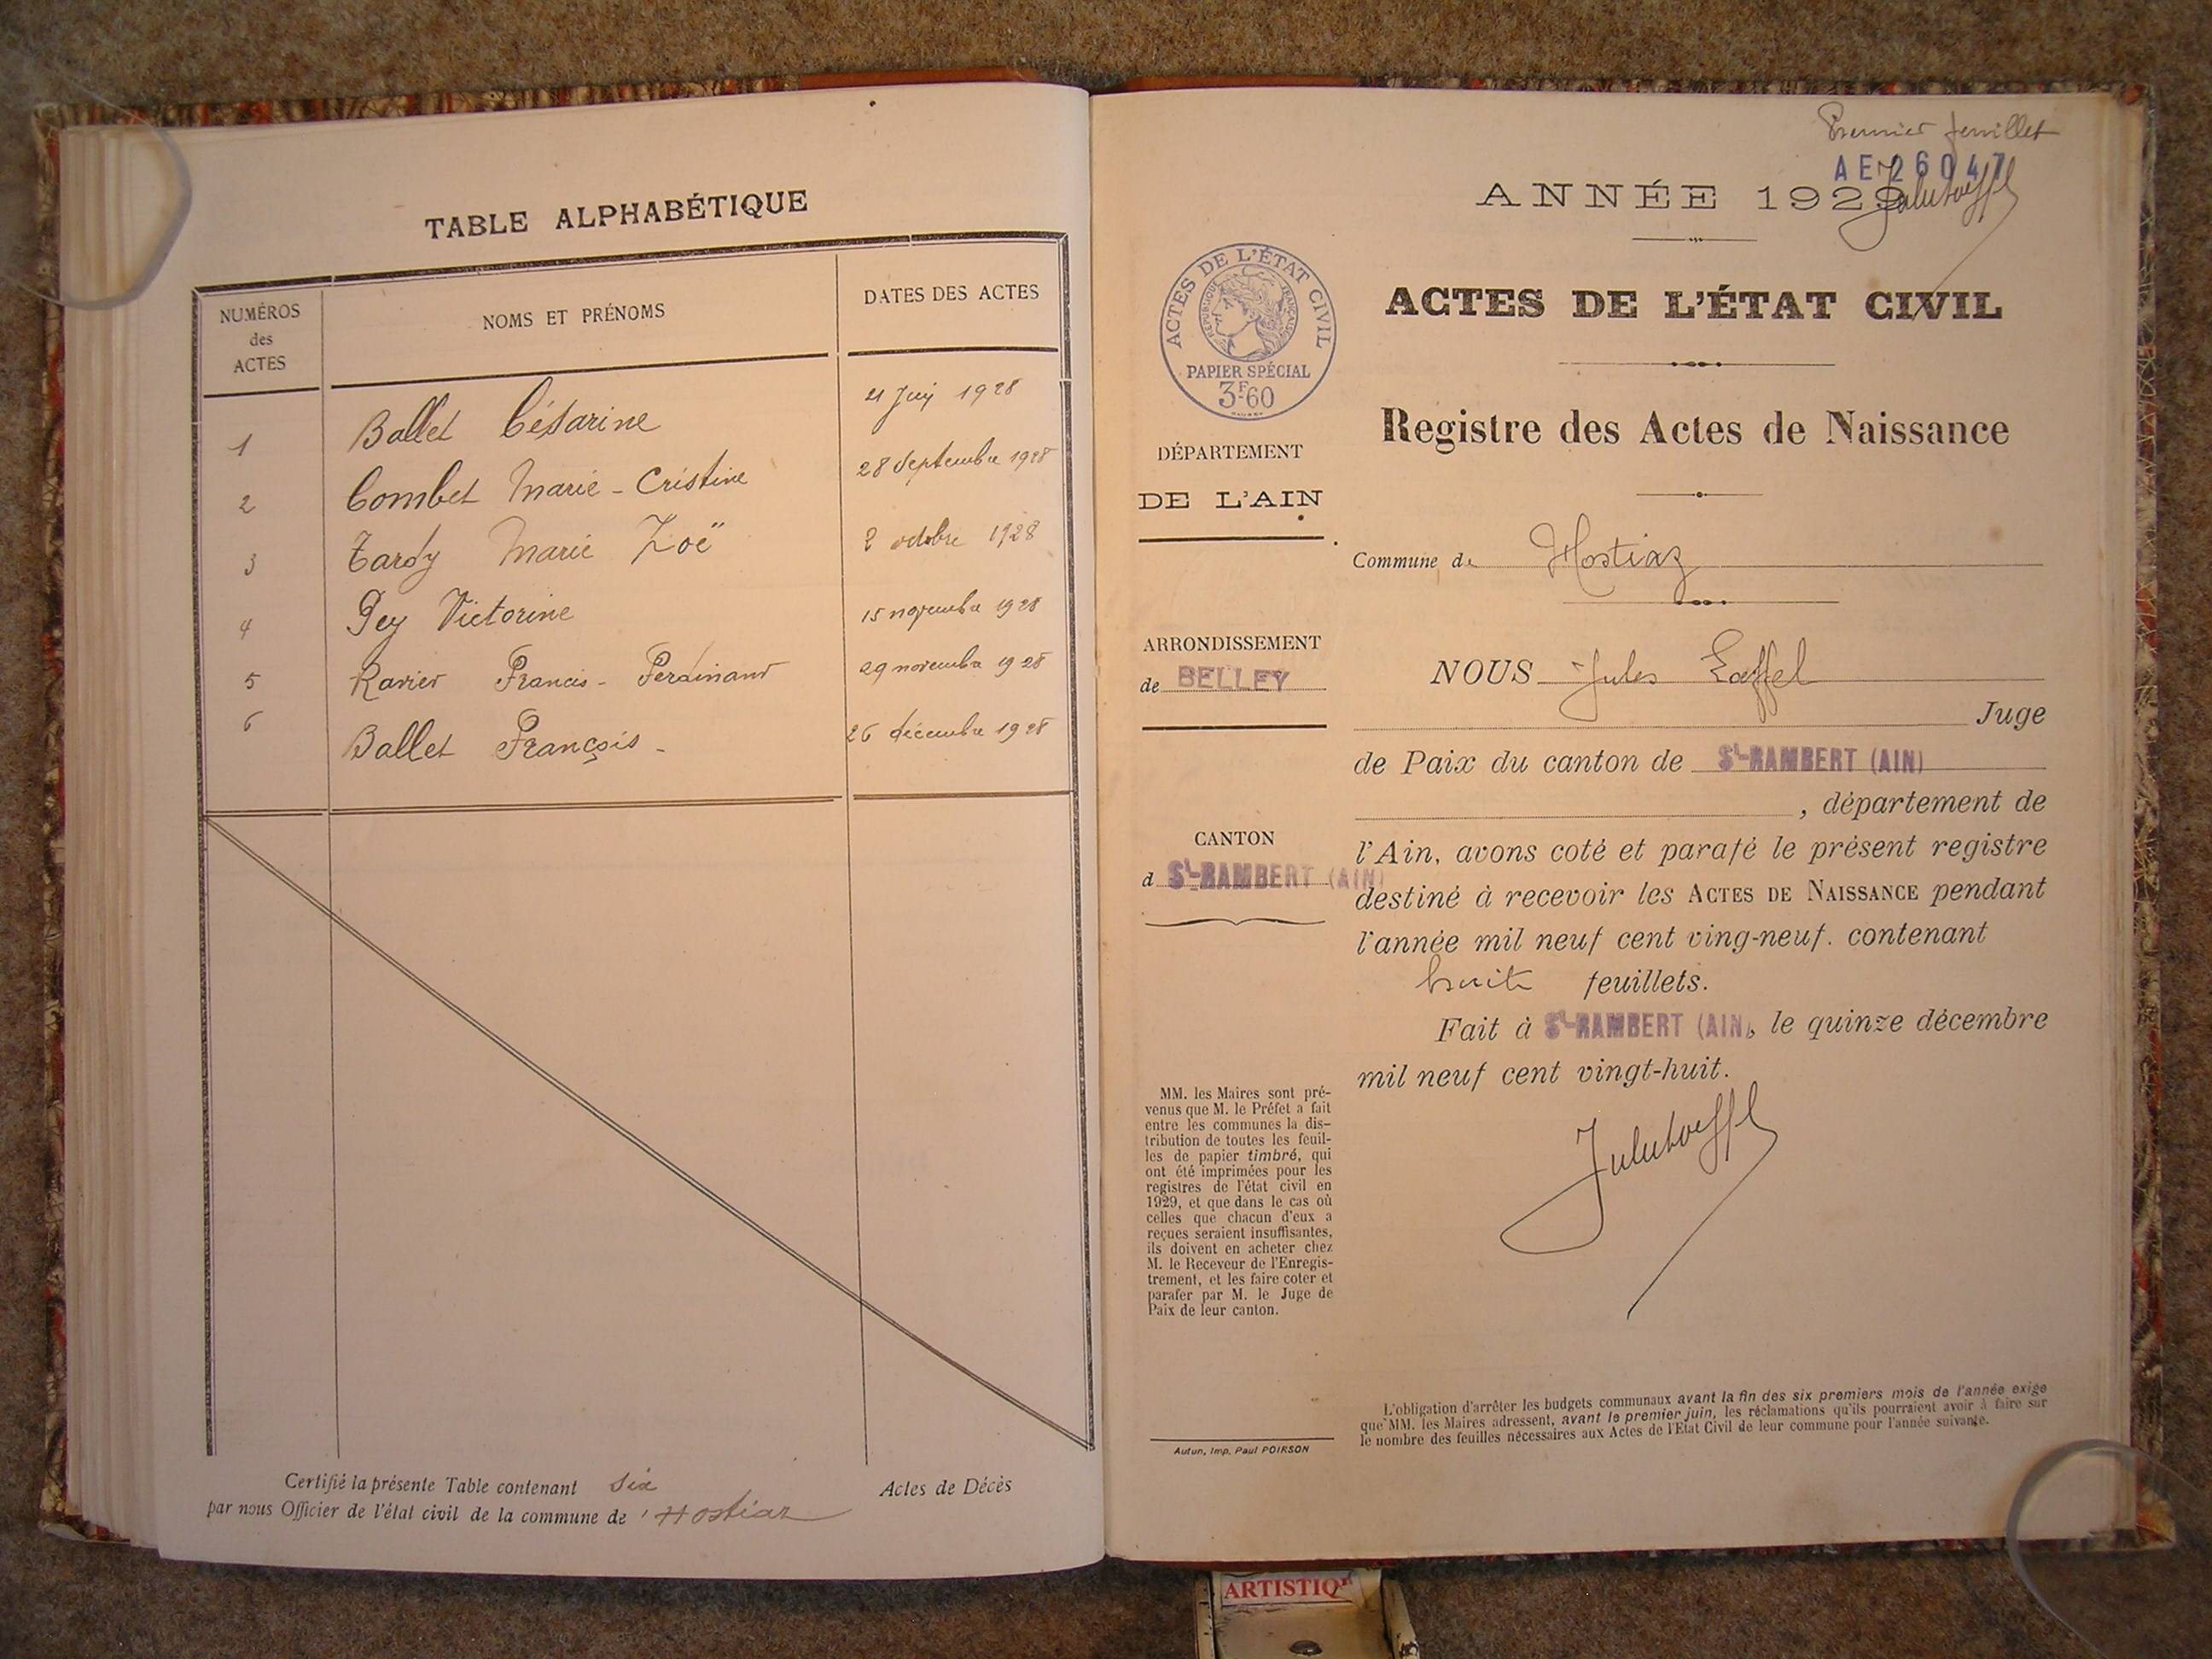 TABLE ALPHABÉTIQUE
NUMÉROS des ACTES
NOMS ET PRÉNOMS
DATES DES ACTES
1 Ballet Césarine 21 Juin 1928
2 Combet Marie - Cristine 28 Septembre 1928
3 Tardy Marie Zoë 2 octobre 1928
4 Pey Victorine 15 novembre 1928
5 Ravier Francis - Ferdinand 29 novembre 1928
6 Ballet François - 26 décembre 1928
Certifié la présente Table contenant Six Actes de Décès
par nous Officier de l'état civil de la commune de Hostiaz
Premier feuillet
AE 26047
ANNÉE 1929
ACTES DE L'ÉTAT CIVIL
RÉPUBLIQUE FRANÇAISE
PAPIER SPÉCIAL
3F60
DÉPARTEMENT
DE L'AIN
ARRONDISSEMENT
de BELLEY
CANTON
d St-RAMBERT (AIN)
MM. les Maires sont pré-
venus que M. le Préfet a fait
entre les communes la dis-
tribution de toutes les feuil-
les de papier timbré, qui
ont été imprimées pour les
registres de l'état civil en
1929, et que dans le cas où
celles que chacun d'eux a
reçues seraient insuffisantes,
ils doivent en acheter chez
M. le Receveur de l'Enregis-
trement, et les faire coter et
parafer par M. le Juge de
Paix de leur canton.
Autun, Imp. Paul POIRSON
ACTES DE L'ÉTAT CIVIL
Registre des Actes de Naissance
Commune de Hostiaz
NOUS Jules
Juge
de Paix du canton de St-RAMBERT (AIN)
, département de
l'Ain, avons coté et parafé le présent registre
destiné à recevoir les ACTES DE NAISSANCE pendant
l'année mil neuf cent ving-neuf. contenant
huit feuillets.
Fait à St-RAMBERT (AIN), le quinze décembre
mil neuf cent vingt-huit.
L'obligation d'arrêter les budgets communaux avant la fin des six premiers mois de l'année exige
que MM. les Maires adressent, avant le premier juin, les réclamations qu'ils pourraient avoir à faire sur
le nombre des feuilles nécessaires aux Actes de l'Etat Civil de leur commune pour l'année suivante.
ARTISTIQ